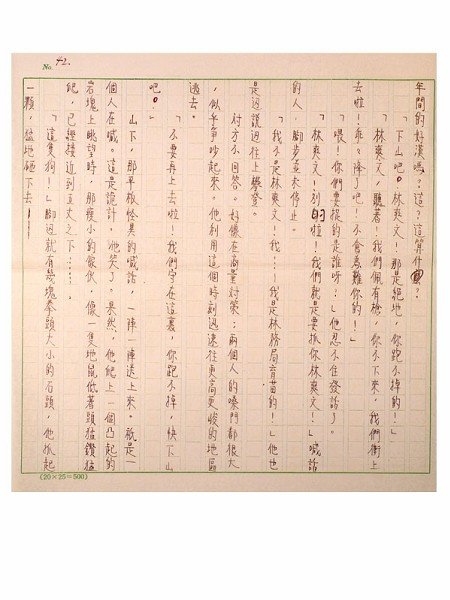 No. 42.
年間的好漢嗎？這？這算什麼？
「下山吧。林爽文！那是絕地，你跑不掉的！」
「林爽文，聽著！我們佩有槍，你不下來，我們衝上
去啦！乖乖降了吧！不會為難你的！」
「喂！你們要捉的是誰呀？」他忍不住發話了。
「林爽文！別啦！我們就是要抓你林爽文！」喊話
的人，腳步並未停止。
「我不是林爽文！我……我是林務局育苗的！」他也
是邊說邊往上攀登。
對方不回答。好像在商量對策；兩個人的嗓門都很大
，似乎爭吵起來。他利用這個時刻迅速往更高更峻的地區
逃去。
「不要再上去啦！我們守在這裏，你跑不掉，快下山
吧。」
山下，那平板怪異的喊話，一陣一陣送上來。就是一
個人在喊。這是詭計，他笑了。果然，他爬上一個凸起的
岩塊上眺望時，那瘦小的傢伙，像一隻地鼠低著頭猛鑽猛
爬，已經接近到五丈之下……。
「這隻狗！」腳邊就有幾塊拳頭大小的石頭，他抓起
一顆，猛地砸下去——
(20×25=500)